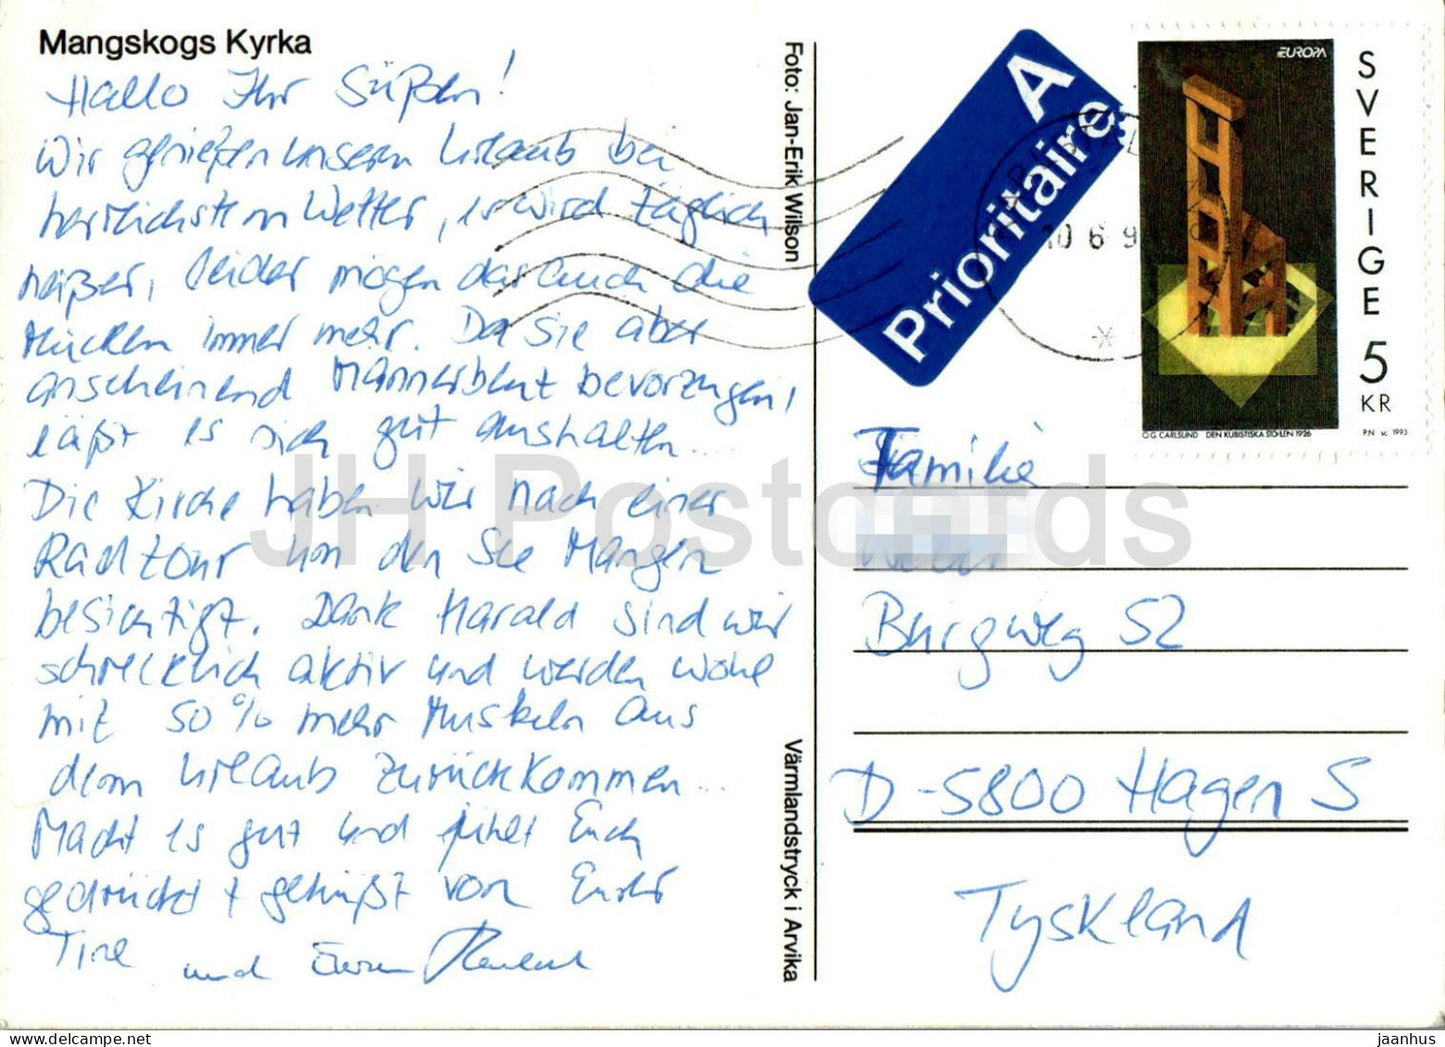 Mangskogs Kyrka
Hallo Ihr Süßen!
Wir genießen unseren Urlaub bei
herrlichstem Wetter, es wird täglich
heißer, leider mögen das auch die
Mücken immer mehr. Da sie aber
anscheinend Männerblut bevorzugen,
läßt es sich gut aushalten...
Die Kirche haben wir nach einer
Radtour um den See Mangen
besichtigt. Dank Harald sind wir
schrecklich aktiv und werden wohl
mit 50% mehr Muskeln aus
dem Urlaub zurückkommen...
Macht es gut und fühlt Euch
gedrückt + geküßt von Eurer
Tine und Eurem
Foto: Jan-Erik Wilson
Värmlandstryck i Arvika
A
Prioritaire
10 6 9
EUROPA
SVERIGE
5
KR
O.G. CARLSUND DEN KUBISTISKA STOLEN 1926
P.N sc. 1993
Familie
Burgweg 52
D-5800 Hagen 5
Tyskland
JH Postcards
jaanhus